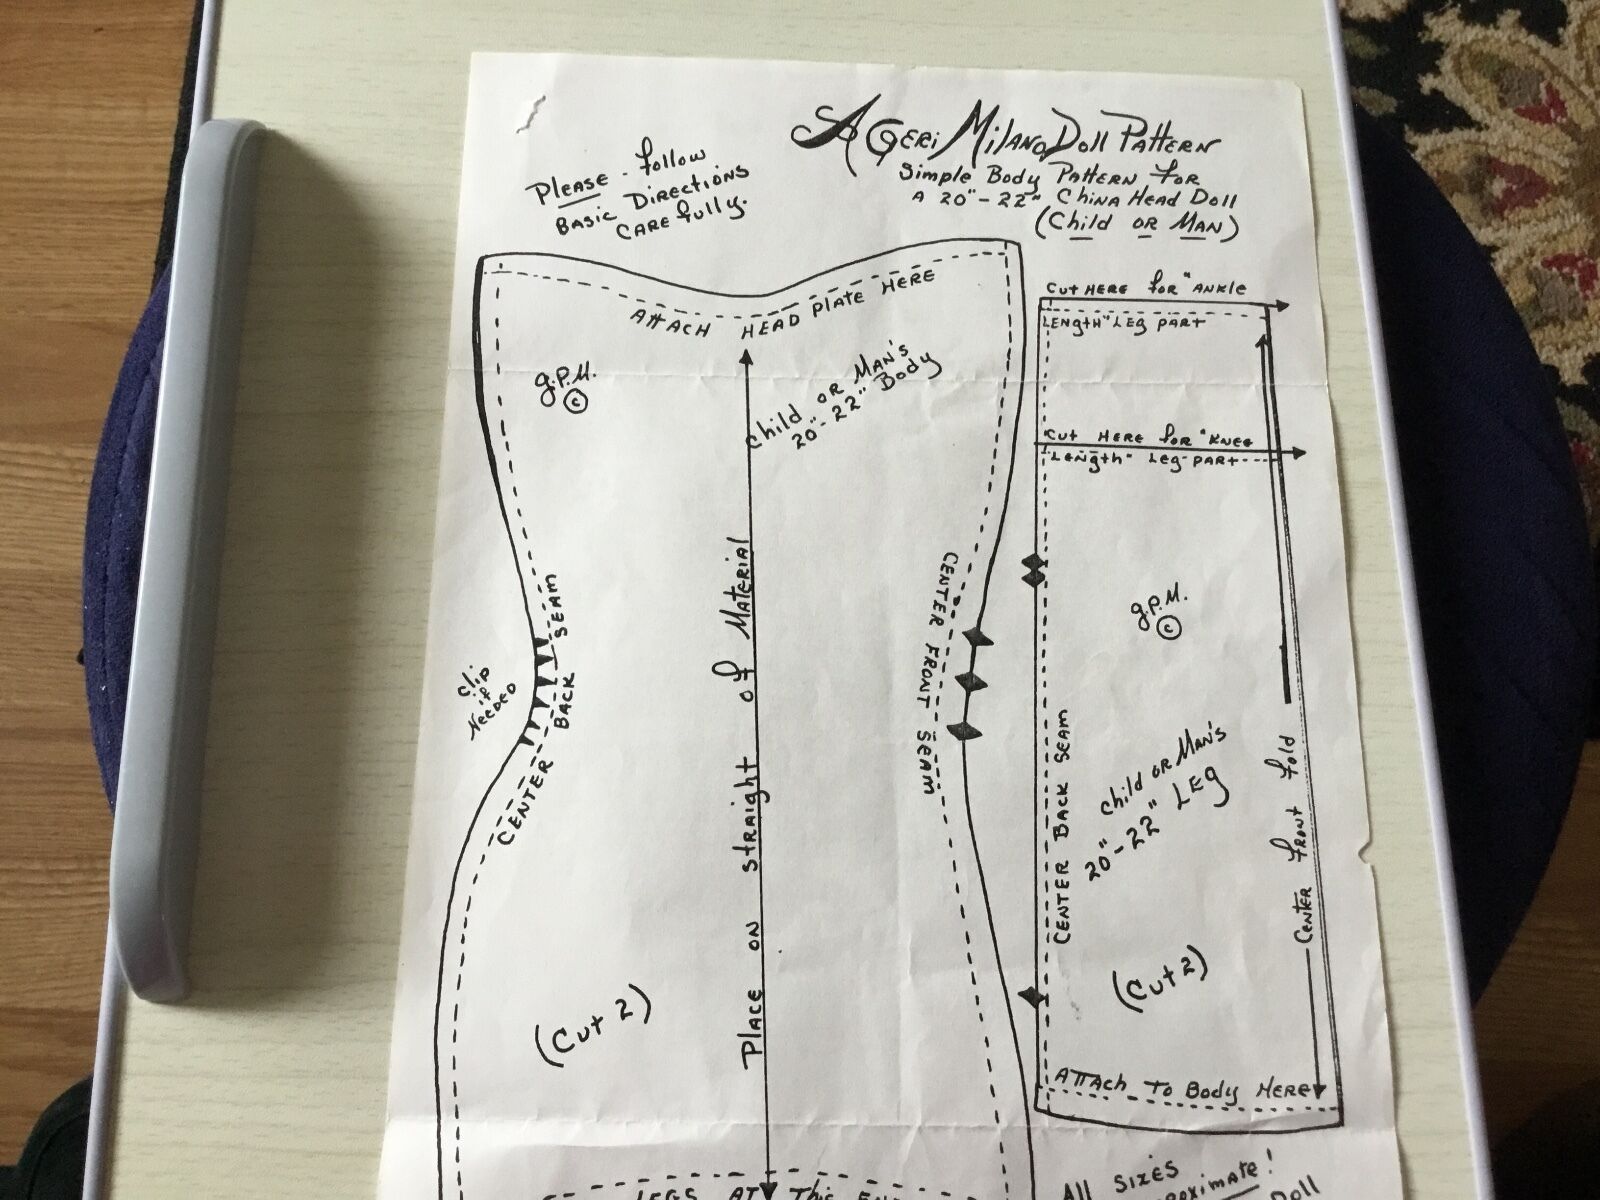 A Geri Milano Doll Pattern
Simple Body Pattern for
A 20"-22" China Head Doll
(Child or Man)
Please - follow
Basic Directions
Carefully.
Attach Head Plate Here
g.P.M.
©
Child or Man's
20"-22" Body
Place on straight of Material
Center Back Seam
Clip
if
Needed
Center Front Seam
(Cut 2)
Legs At This
Cut Here for "Ankle
Length" Leg Part
Cut Here for "Knee
Length" Leg Part
g.P.M.
©
Center Back Seam
Child or Man's
20"-22" Leg
Center Front Fold
(Cut 2)
Attach To Body Here
All Sizes
Doll